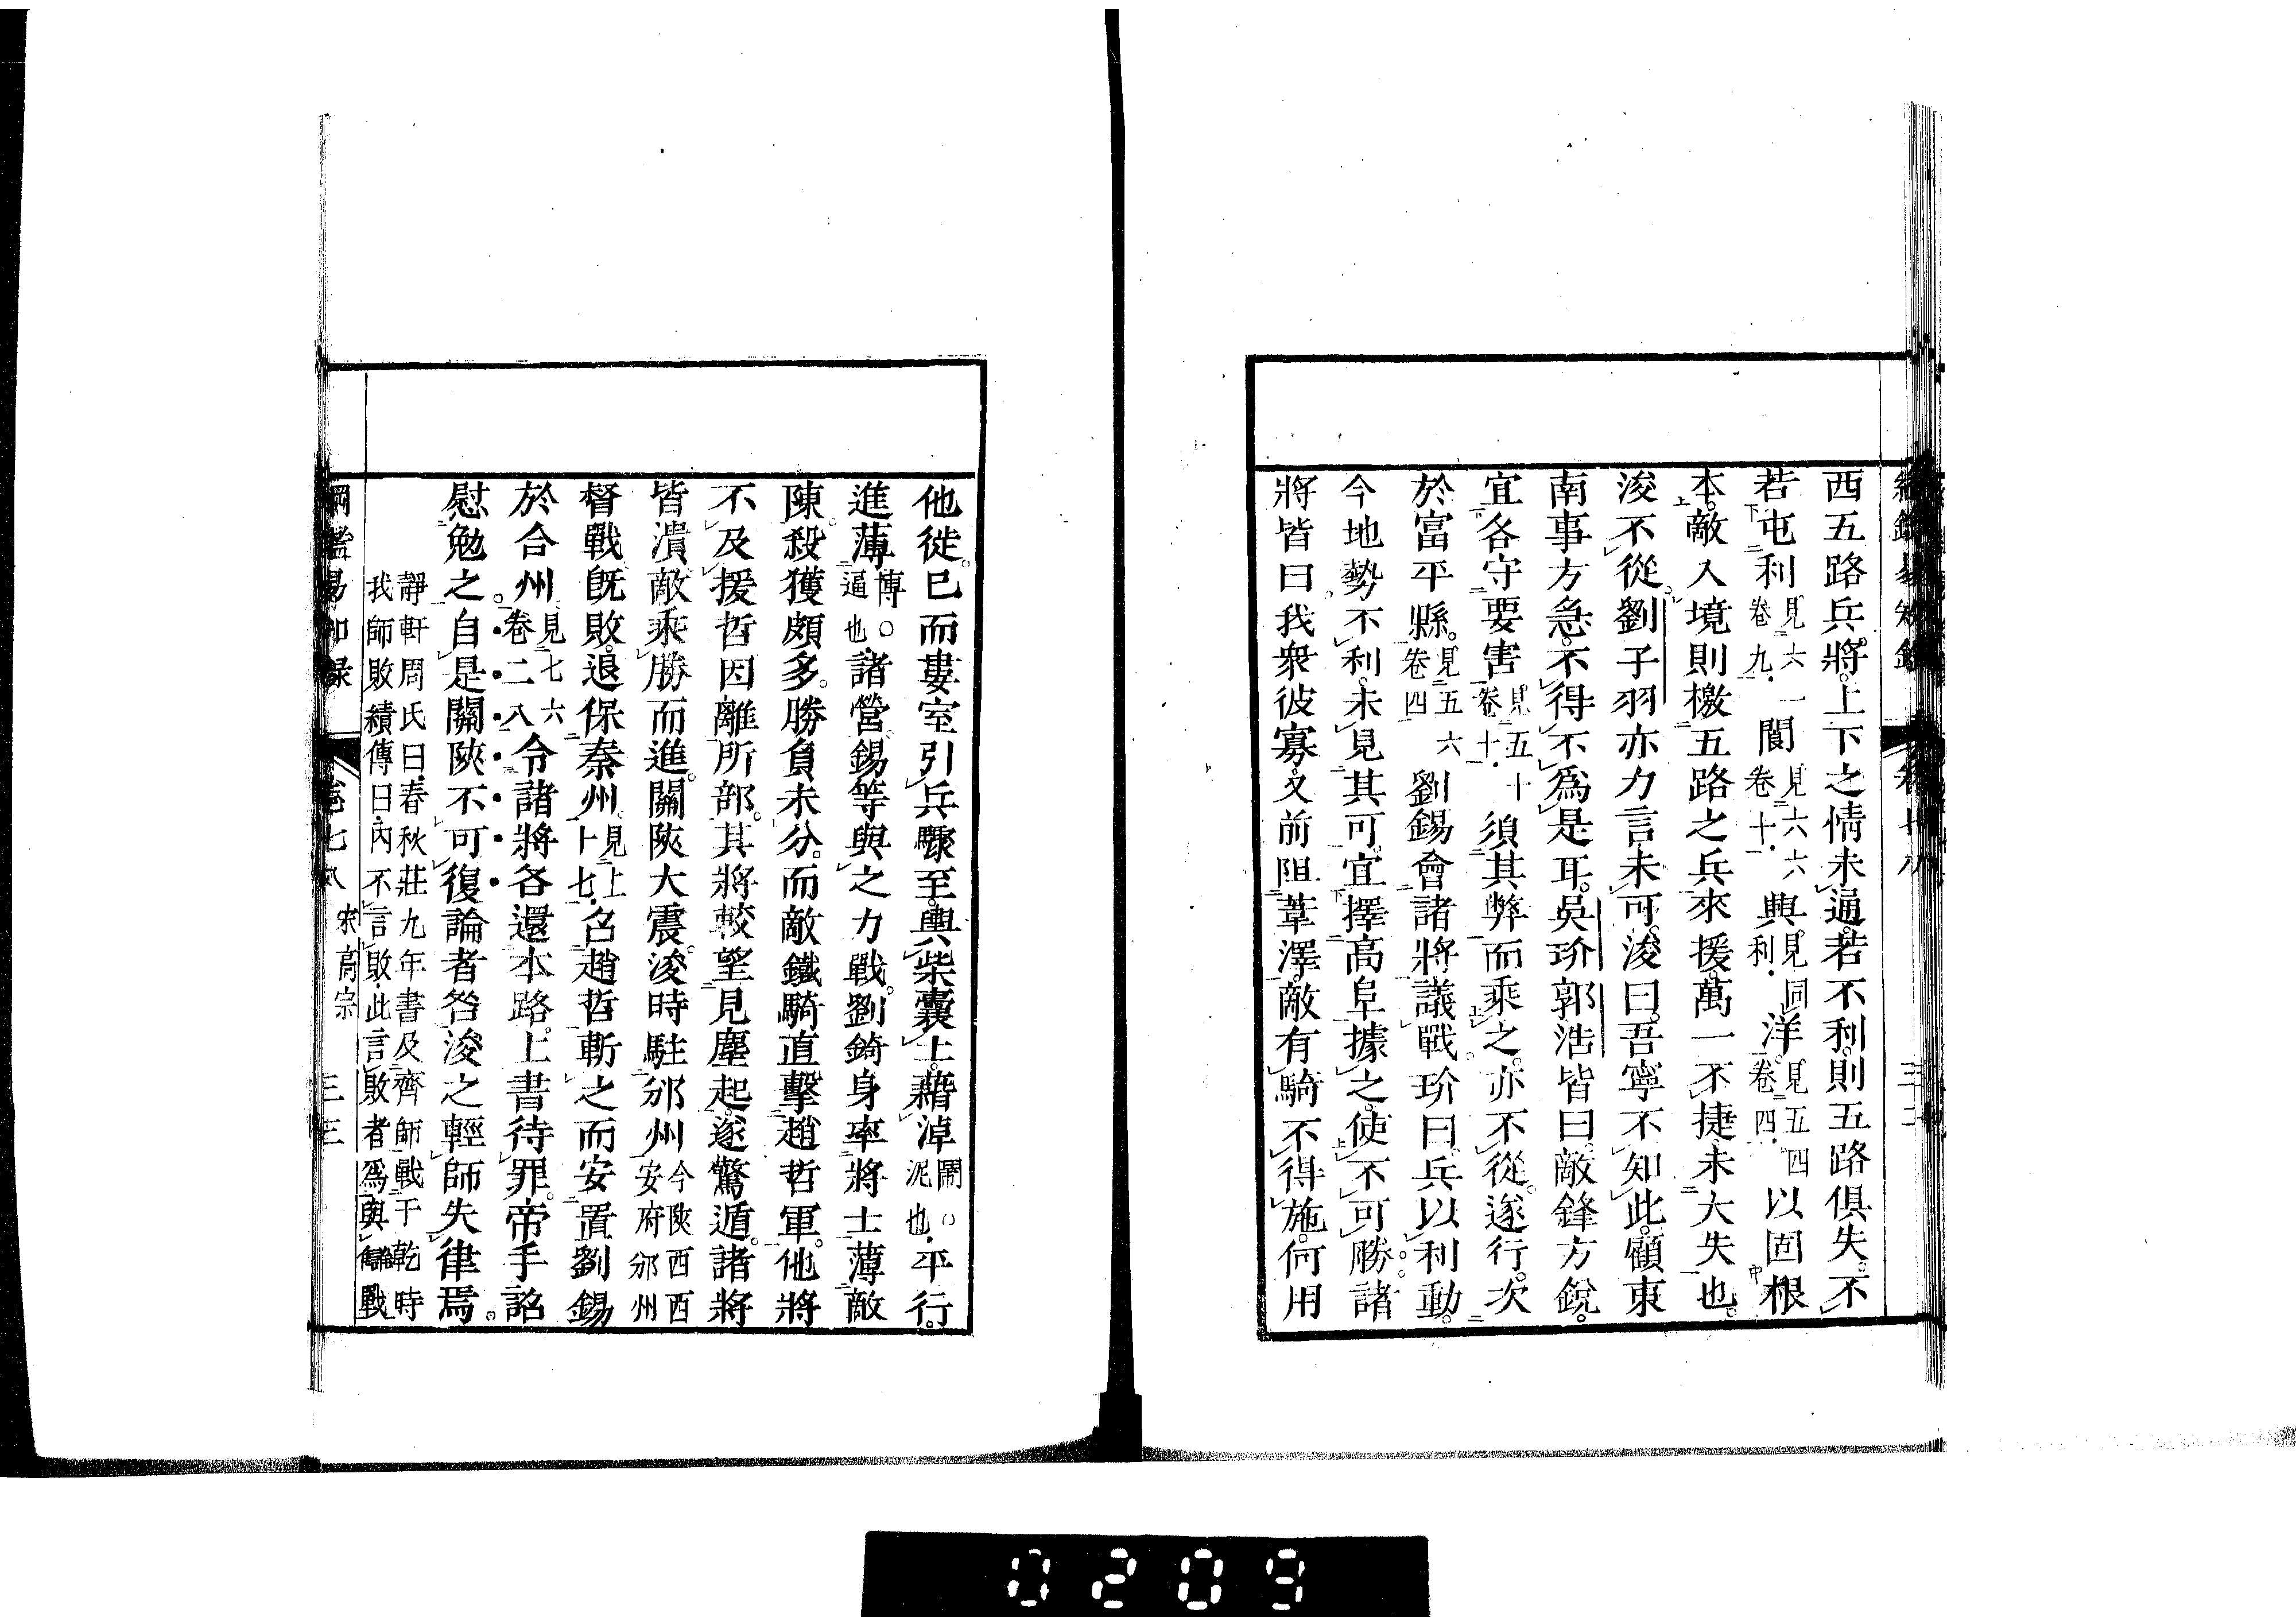 西五路兵將。上下之情未通。若不利則五路俱失。不
若屯利見六一卷九閬見六六卷十一興見同利洋見五四卷四以固根
本。敵入境則檄五路之兵來援。萬一不捷。未大失也。
浚不從。劉子羽亦力言未可。浚曰。吾寧不知此。顧東
南事方急。不得不爲是耳。吳玠郭浩皆曰。敵鋒方銳。
宜各守要害見五十卷十一須其弊而乘之。亦不從。遂行。次
於富平縣。見五六卷四劉錫會諸將議戰。玠曰。兵以利動。
今地勢不利。未見其可。宜擇高阜據之。使不可勝。諸
將皆曰。我衆彼寡。又前阻葦澤。敵有騎不得施。何用
他徙。已而婁室引兵驟至。輿柴囊土。藉淖鬧○泥也平行。
進薄博○逼也諸營。錫等與之力戰。劉錡身率將士薄敵
陳。殺獲頗多。勝負未分。而敵鐵騎直擊趙哲軍。他將
不及援。哲因離所部。其將較望見塵起。遂驚遁。諸將
皆潰。敵乘勝而進。關陝大震。浚時駐邠州今陝西西安府邠州
督戰。旣敗。退保秦州。見上十七召趙哲斬之。而安置劉錫
於合州。見七六卷二八令諸將各還本路。上書待罪。帝手詔
慰勉之。自是關陝不可復論者咎浚之輕師失律焉。
靜軒周氏曰。春秋莊九年書及齊師戰于乾時
我師敗績傳曰。內不言敗。此言敗者爲與讎戰
綱鑑易知錄 卷七八 宋高宗 三三